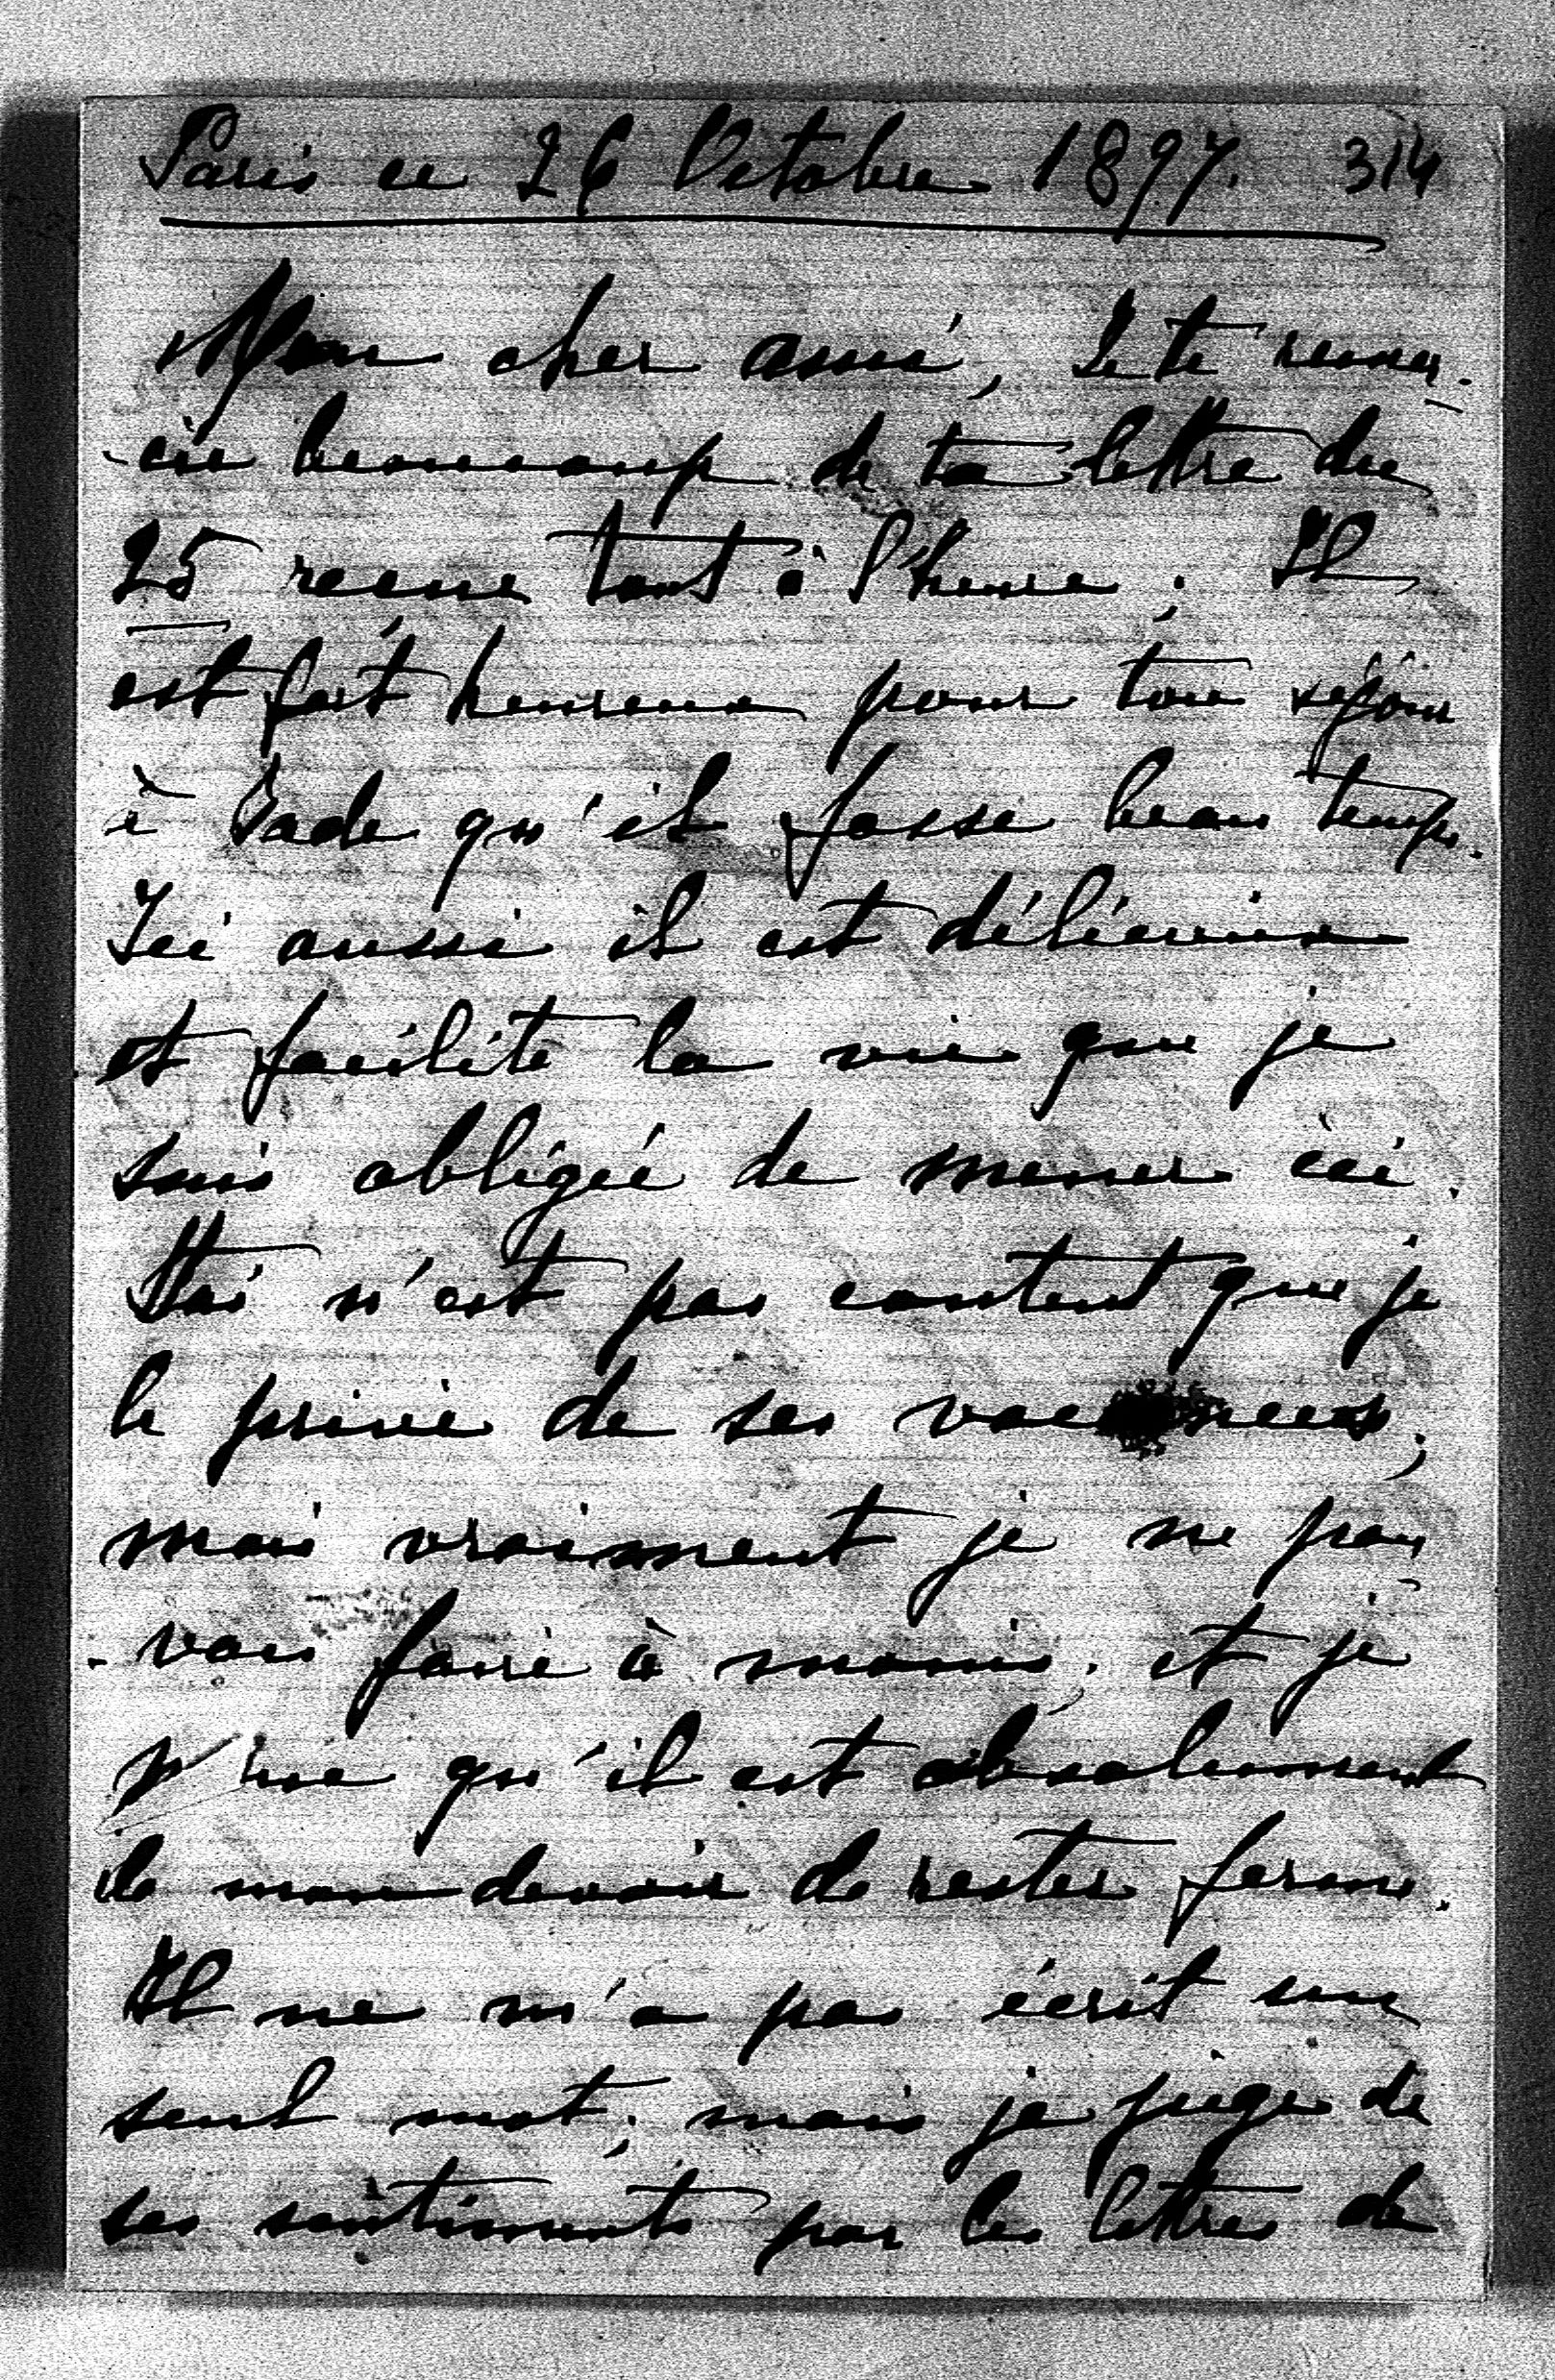 Paris ce 26 Octobre 1897. 314
Mon cher ami, Je te remer-
-cie beaucoup de ta lettre du
25 reçue tout à l'heure; Il
est fort heureux pour ton séjour
à Bade qu'il fasse beau temps.
Ici aussi il est délicieux
et facilite la vie que je
suis obligée de mener ici.
n'est pas content que je
le prive de ses vacances;
mais vraiment je ne pou
-vais faire à moins. et je
qu'il est absolument
de mon devoir de rester ferme.
Il ne m'a pas écrit un
seul mot; mais je juge de
ses sentiments par les lettres de